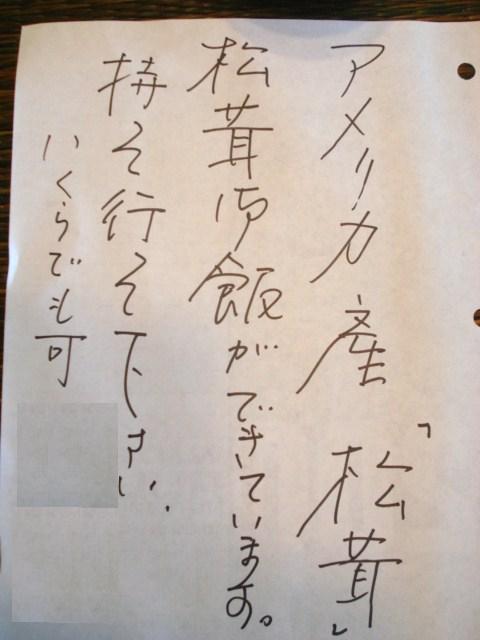 アメリカ産「松茸」
松茸御飯ができています。
持って行って下さい。
いくらでも可